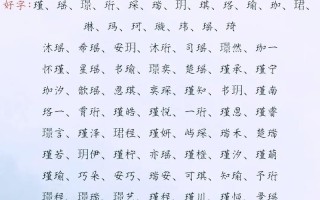 好字:瑾、瑶、璟、珩、琛、瑞、玥、琪、珞、瑜、珈、珺、
琳、玛、珂、璇、玮、瑶、琦
沐瑶、希瑶、安玥、沐珩、司瑶、璟然、珈一
怀瑾、星瑶、书瑜、璟奕、楚瑶、瑾承、瑾宁
珈汐、歆瑶、恩琪、奕琛、瑾知、书玥、瑾南
珞一、育珩、瑾皓、瑾悦、一珩、瑾恩、景瑶
璟言、瑾泽、珺程、瑾妍、屿琛、瑞禾、楚瑜
瑾若、玥伊、瑾柠、亦瑶、瑾橙、瑾汐、瑾萌
瑾瑜、巧朵、安巧、瑞安、可琪、知瑜、予珩
璟程、璟瑞、璟艺、瑾程、瑾川、瑾恒、